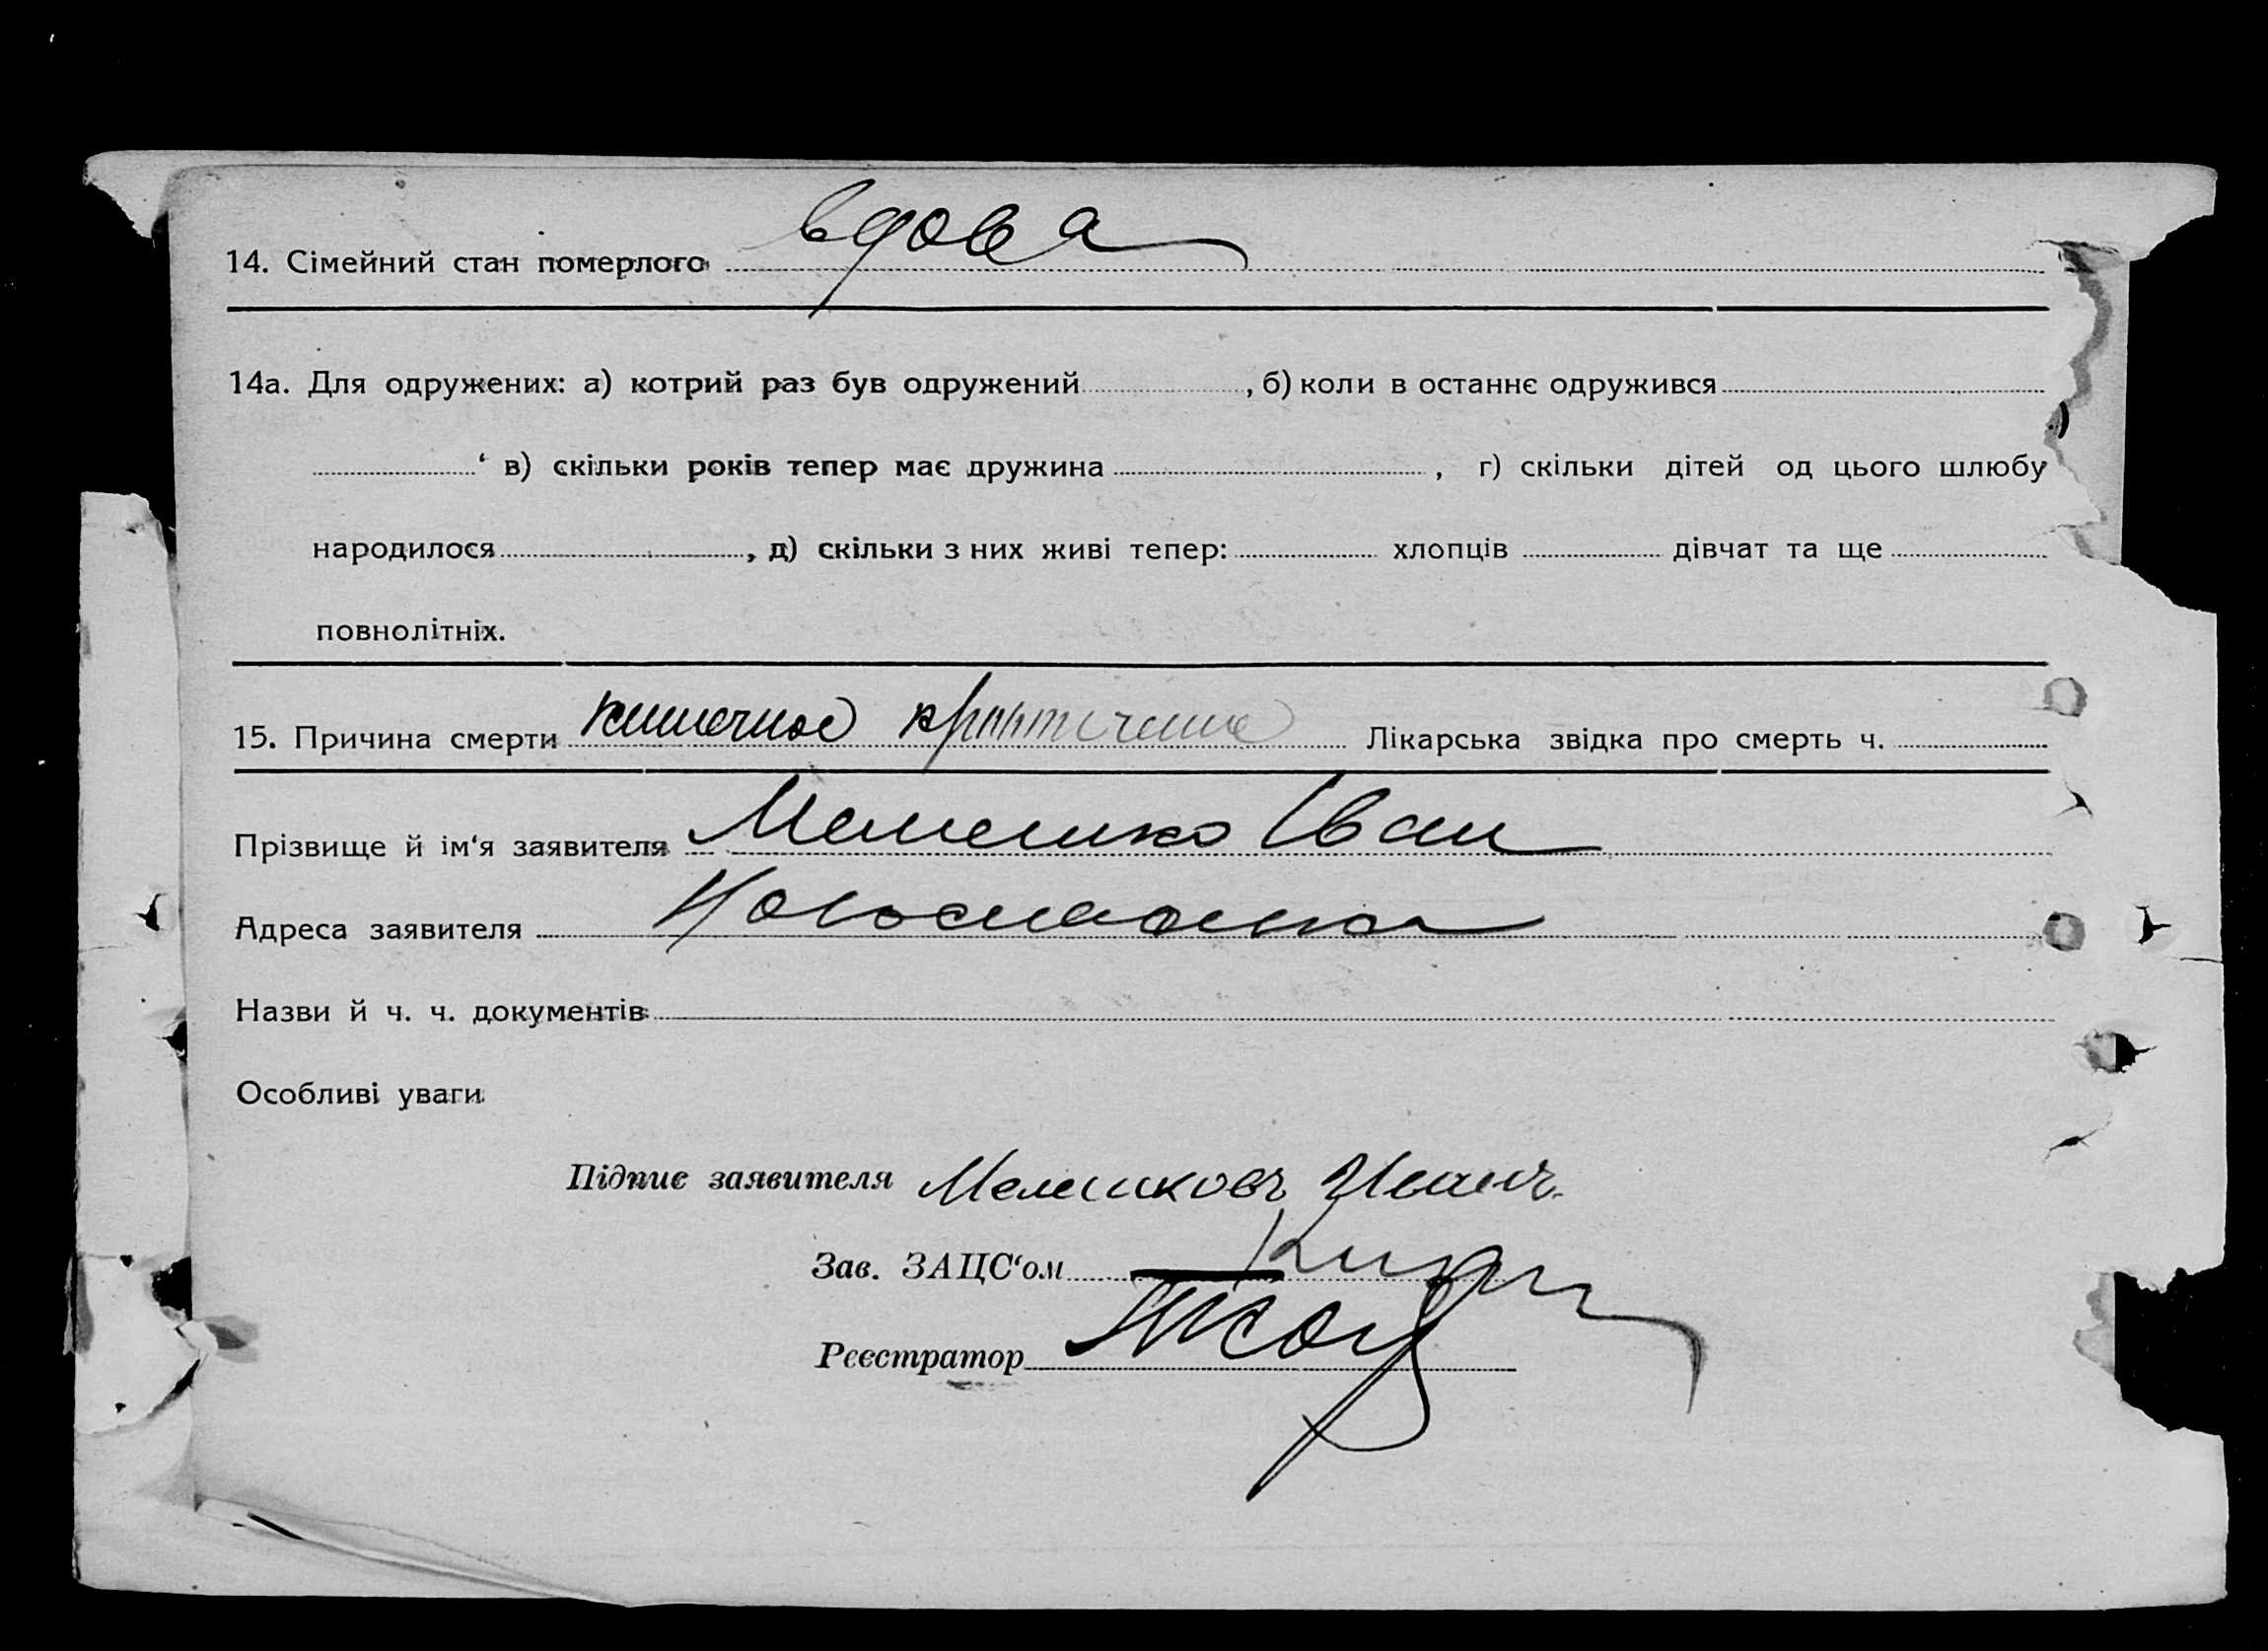 14. Сімейний стан померлого вдова
14а. Для одружених: а) котрий раз був одружений , б) коли в останнє одружився
‘ в) скільки років тепер має дружина , г) скільки дітей од цього шлюбу
народилося , д) скільки з них живі тепер: хлопців дівчат та ще
повнолітніх.
15. Причина смерти кишечное Лікарська звідка про смерть ч.
Прізвище й ім‘я заявителя Мелешко Іван
Адреса заявителя
Назви й ч. ч. документів
Особливі уваги
Підпис заявителя Мелешковъ Иванъ
Зав. ЗАЦС‘ом
Реєстратор